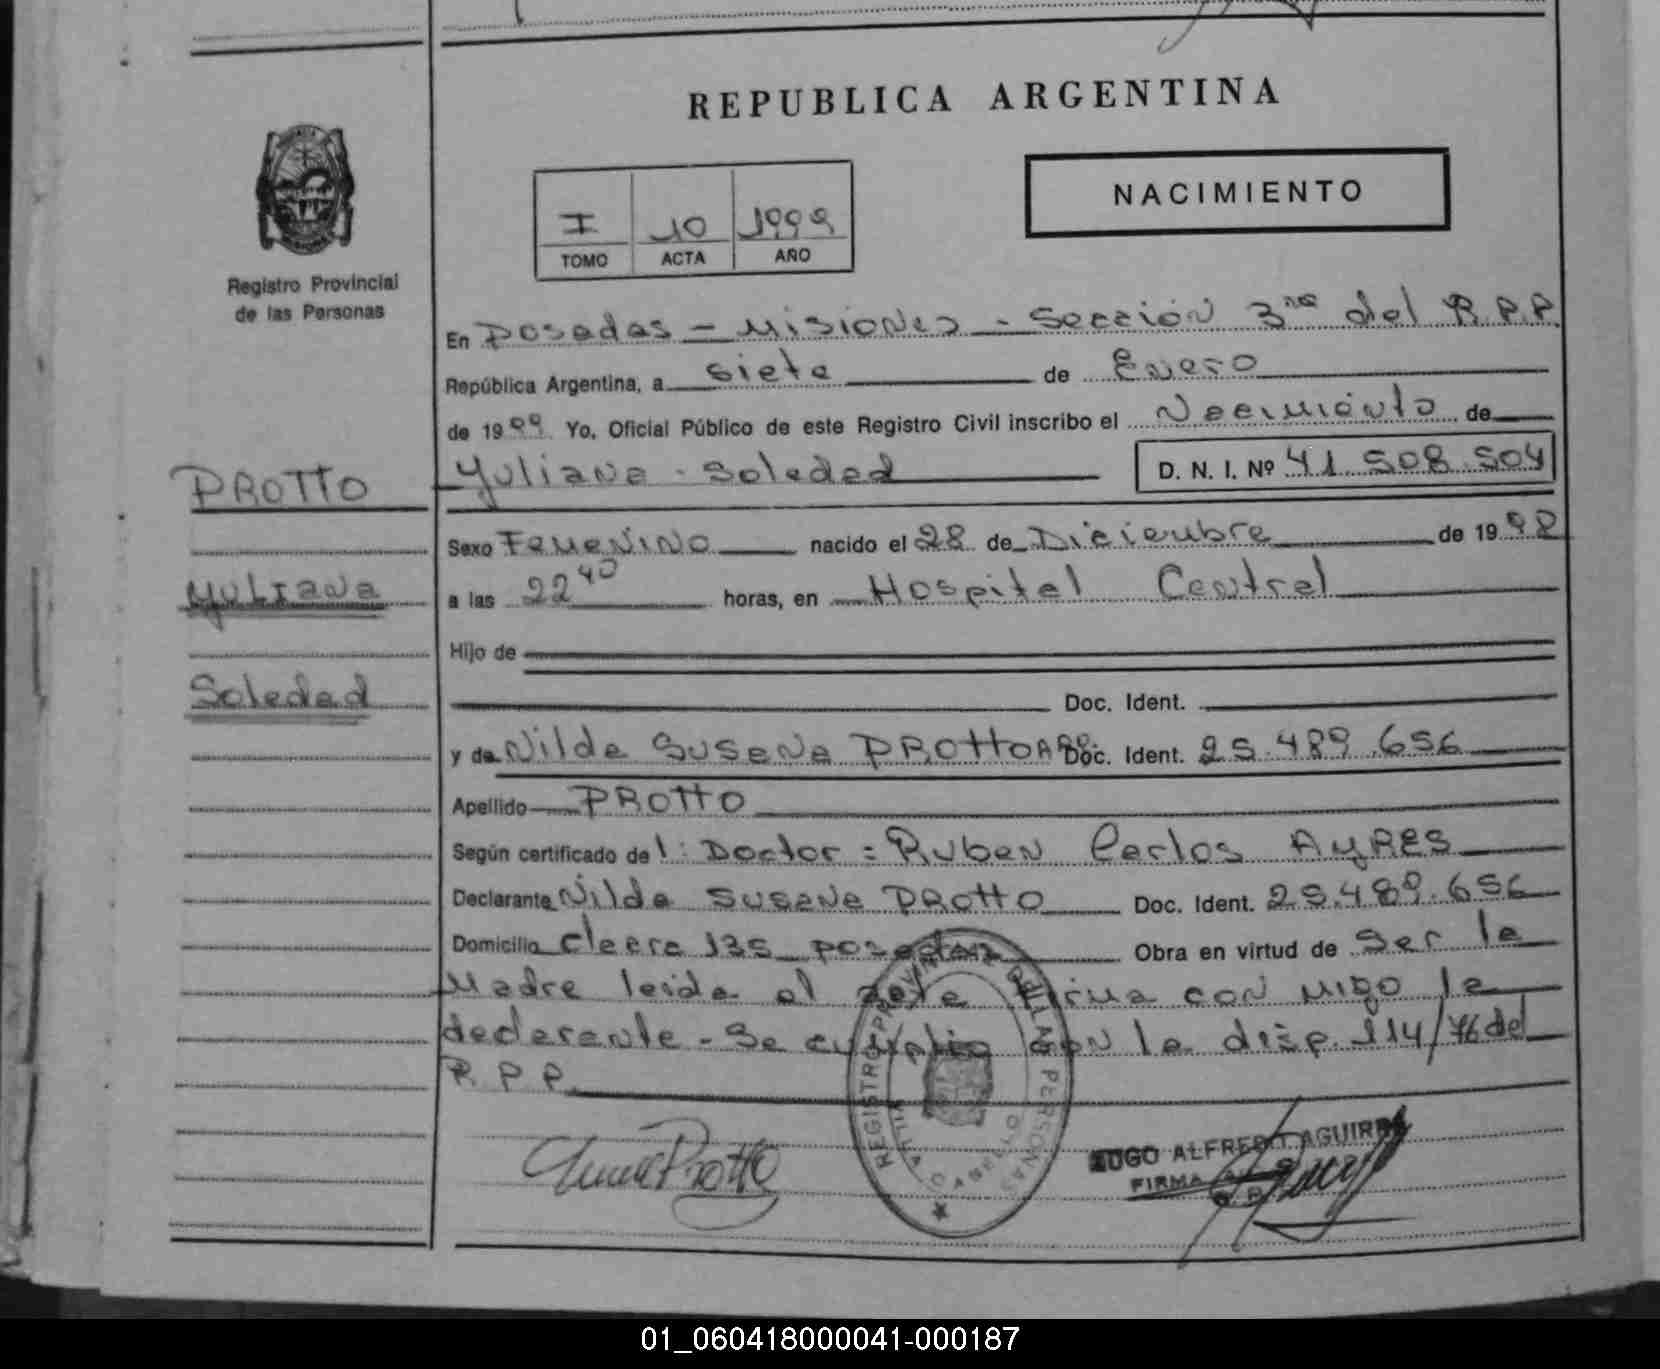 REPUBLICA ARGENTINA
NACIMIENTO
I 10 1999
TOMO ACTA AÑO
Registro Provincial
de las Personas
En Posadas - Misiones - Sección 3ra del R.P.P.
República Argentina, a siete de Enero
de 1999 Yo, Oficial Público de este Registro Civil inscribo el Nacimiento de
PROTTO
Yuliana - Soledad D. N. I. Nº 41.508.504
Sexo Femenino nacido el 28 de Diciembre de 1998
Yuliana
a las 22 40 horas, en Hospital Central
Hijo de
Soledad
Doc. Ident.
y de Nilda Susana PROTTO ARG. Doc. Ident. 25.489.656
Apellido PROTTO
Según certificado del: Doctor: Ruben Carlos AyRES
Declarante Nilda Susana PROTTO Doc. Ident. 25.489.656
Domicilio 135 posadas Obra en virtud de Ser la
Madre leida el acta firma con migo la
declarante - Se cumplio con la disp. 114/76 del
R.P.P.
REGISTRO PROVINCIAL DE LAS PERSONAS
Protto
HUGO ALFREDO AGUIRRE
FIRMA
01_060418000041-000187